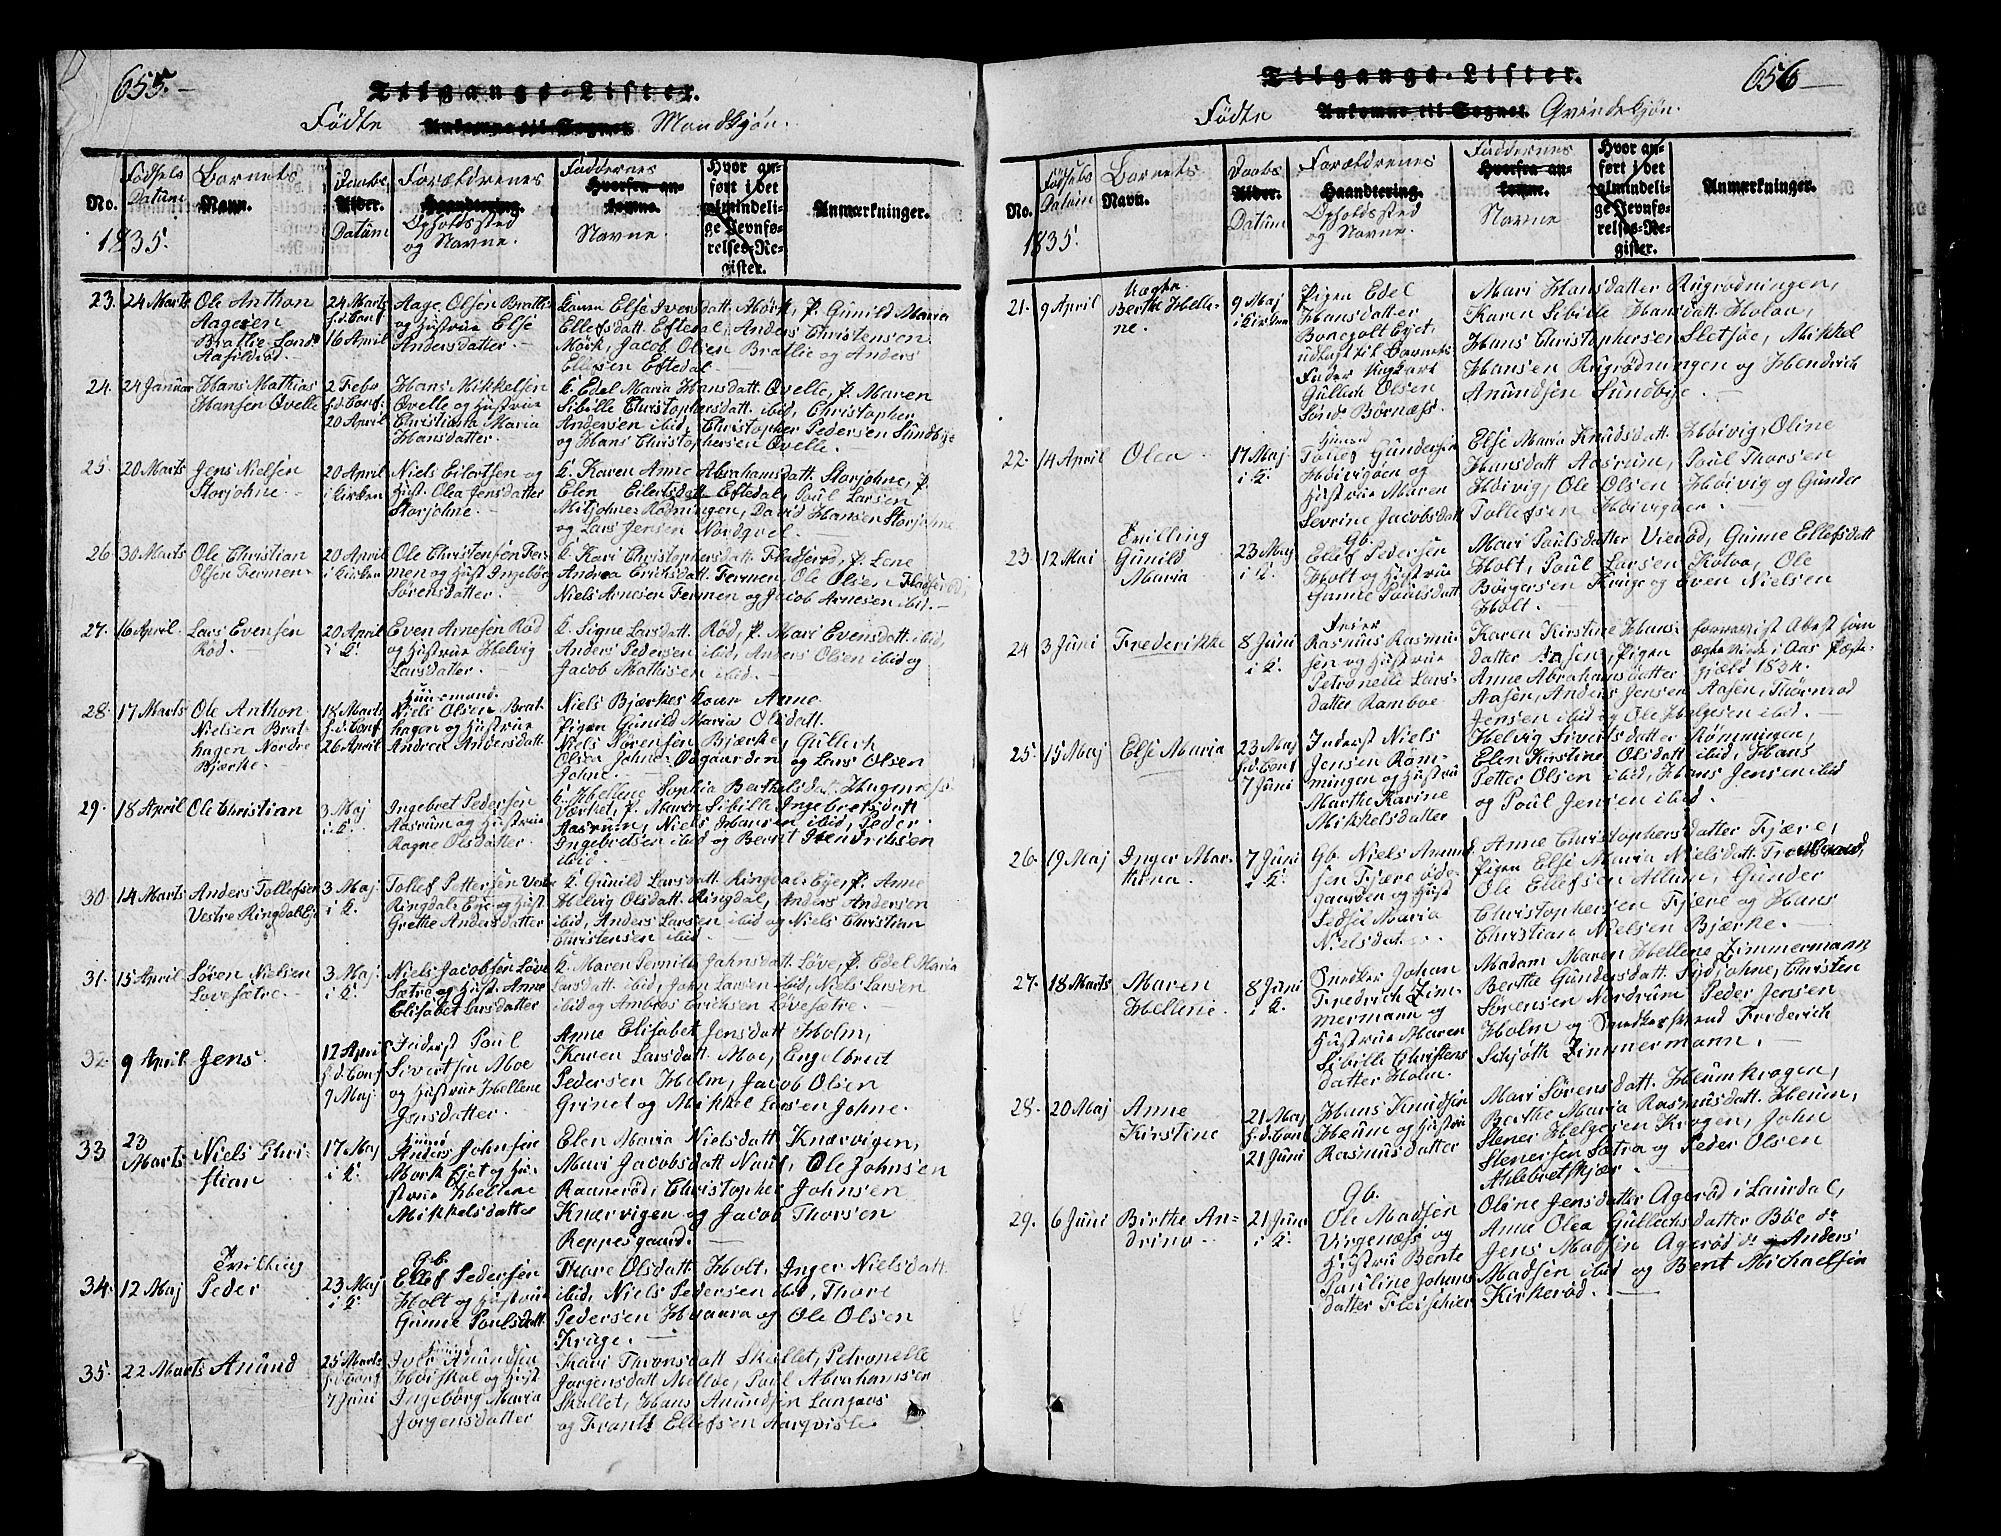 655.
Tilgangs-Lister.
Fødte Ankomne til Sognet Mandkjøn.
No. 1835.
Fødsels Datum
Barnets Navn.
Daabs Alder. Datum
Forældrenes Haandtering. Opholdssted og Navne.
Faddernes Hvorfra ankomne. Navne.
Hvor anført i det almindelige Jevnførelses-Register.
Anmærkninger.
23. 24 Marts Ole Anthon
Aagesen
Brattlie
24 Marts
h.d. Conf
16 April
Aage Olsen Bratlie
og Hustrue Else
Andersdatter.
Konen Else Iversdatt. Mørk, P. Gunild Maria
Ellefsdatt. Eftedal, Anders Christensen
Mørk, Jacob Olsen Bratlie og Anders
Ellefsen Eftedal.
24. 24 Januar Hans Mathias
Hansen Qvelle
2 Febr
h.d. Conf:
20 April
Hans Mikkelsen
Qvelle og Hustrue
Christiana Maria
Hansdatter.
K. Edel Maria Hansdatt. Qvelle, P. Maren
Sibille Christophersdatt. ibid, Christopher
Andersen ibid, Christopher Pedersen Sundbye
og Hans Christophersen Qvelle.
25. 20 Marts Jens Nielsen
Storjohne.
20 April
i Kirken
Niels Eilertsen og
Hust. Olea Jensdatter
Storjohne.
K. Karen Anne Abrahamsdatt. Storjohne, P.
Elen Eilertsdatt. Eftedal, Poul Larsen
Mitjohne Rødningen, David Hansen Storjohne
og Lars Jensen Nordqvel.
26 30 Marts Ole Christian
Olsen Fermen
20 April
i Kirken
Ole Christensen Fermen
og Hust. Ingebøer
Sørensdatter.
K. Kari Christophersdatt. Fladserød, P. Lene
Andrea Erichsdatt. Fermen, Ole Olsen Fladserød,
Niels Arnesen Fermen og Jacob Arnesen ibid.
27. 16 April. Lars Evensen
Rød
20 April
i K.
Even Arnesen Rød
og Hustrue Helvig
Larsdatter.
K. Signe Larsdatt. Rød, P. Mari Evensdatt. ibid,
Anders Pedersen ibid, Anders Olsen ibid og
Jacob Mathisen ibid.
28. 17 Marts Ole Anthon
Nielsen Brathagen
Nordre
Bjerke.
18 Marts
h.d. Conf
26 April
Huusmand.
Niels Olsen Brathagen
og Hustrue
Andrea Andersdatt
Niels Bjerkes Kone Anne
Pigen Gunild Maria Olsdatt.
Niels Sørensen Bjerke, Gullech
Olsen Johne Oegaarden og Lars Olsen
Johne.
29. 18 April Ole Christian
3 Maj
i K.
Ingebret Pedersen
Aasrum og Hustrue
Ragne Olsdatter.
K. Hellene Sophia Berthelsdatt. Hugness
Værket, P. Maren Sibille Ingebretsdatt
Aasrum, Niels Hansen ibid, Peder
Ingebretsen ibid og Bernt Hendriksen
ibid.
30. 14 Marts Anders Tollefsen
Vestre Ringdals Eje
3 Maj
i K.
Tollef Pettersen Vestre
Ringdals Eje og Hust.
Grethe Andersdatter
K. Gunild Larsdatt. Ringdals Eje, P. Anne
Helvig Olsdatt. Ringdal, Anders Andersen
ibid, Anders Larsen ibid og Niels Christian
Christensen ibid.
31. 15 April Søren Nielsen
Løvesætre.
3 Maj
i K.
Niels Jacobsen Løve
Sætre og Hust. Anne
Elisabet Larsdatter
K. Maren Pernille Jahnsdatt. Løve, P. Edel Maria
Larsdatt. ibid, John Larsen ibid, Niels Larsen
ibid og Ambros Erichsen Løvesætre.
32. 9 April Jens.
12 April
h.d. Conf
9 Maj.
Inderst Poul
Sivertsen Moe
og Hustrue Hellene
Jensdatter.
Anne Elisabet Jensdatt. Holm,
Karen Larsdatt. Moe, Engelbret
Pedersen Holm, Jacob Olsen
Grinel og Mikkel Larsen Johne.
33 23 Marts Niels Christian
17 Maj
i K.
Huusd
Anders Johnsen
Mork Ejet og Hustrue
Hellene
Mikkelsdatter
Elen Maria Nielsdatt. Knærvigen,
Mari Jacobsdatt Naul, Ole Johnsen
Raanerød, Christopher Johnsen
Knærvigen og Jacob Thorsen
Reppesgaard.
34. 12 Maj Tvilling
Peder
23 Maj
i K.
Gb.
Ellef Pedersen
Holt og Hustrue
Gunne Poulsdatt.
Thore Olsdatt. Holt, Inger Nielsdatt.
ibid, Niels Pedersen ibid, Thore
Pedersen Haaara og Ole Olsen
Krüge.
35. 22 Marts Anund
25 Marts
h.d. Conf
7 Juni
Iver Anundsen
Høiskal og Hust
Ingeborg Maria
Jørgensdatter
Kari Thronsdatt Skallet, Petronelle
Jørgensdatt Melløe, Poul Abrahamsen
Skallet, Hans Anundsen Langaas
og Frants Ellefsen Aarqviste
656
Tilgangs-Lister.
Fødte Ankomne til Sognet Qvindekjøn.
No. 1835.
Fødsels Datum
Barnets Navn.
Daabs Alder. Datum
Forældrenes Haandtering. Opholdssted og Navne.
Faddernes Hvorfra ankomne. Navne
Hvor anført i det almindelige Jevnførelses-Register.
Anmærkninger.
21. 9 April Uægte
Berthe Hellene.
9 Maj
i Kirken
Pigen Edel
Hansdatter
Bonegolt Ejet,
udlagt til Barnets
Fader Ungkarl
Gullech Olsen
Sønd. Børnæss.
Mari Hansdatter Rugrødningen,
Karen Sibille Hansdatt. Holan,
Hans Christophersen Sletsjøe, Mikkel
Hansen Rugrødningen og Hendrich
Anundsen Sundbye.
22. 14 April Olea
17 Maj
i K.
Huusm
Tollef Gundersen
Høivigøen og
Hustrue Maren
Sevrine Jacobsdatt
Else Maria Knudsdatt. Høivig, Oline
Hansdatt Aasrum, Poul Thorsen
Høivig, Ole Olsen Høivig og Gunder
Tollefsen Høivigøer.
23. 12 Mai Tvilling
Gunild
Maria
23 Maj
i K.
Gb.
Ellef Pedersen
Holt og Hustrue
Gunne Poulsdatt
Mari Poulsdatter Vierød, Gunne Ellefsdatt
Holt, Poul Larsen Kolva, Ole
Børgersen Krüge og Even Nielsen
Holt.
24 3 Juni Frederikke
8 Juni
i K.
Rasmus Rasmusen
og Hustrue
Petronelle Larsdatter
Ramboe
Karen Kirstine Hansdatter
Aasen, Pigen
Anne Abrahamsdatter
Aasen, Anders Jensen Aasen, Thormod
Jensen ibid og Ole Helgesen ibid.
forrevigst Attest som
ægte Viede i Aas Præstegjeld
1834.
25. 15 Maj Else Maria
23 Maj
h.d. Conf
7 Juni
Inderst Niels
Jensen Rømmingen
og Hustrue
Marthe Karine
Mikkelsdatter
Helvig Sivertsdatter Rømningen,
Elen Kirstine Olsdatt ibid, Hans
Petter Olsen ibid, Hans Jensen ibid
og Poul Jensen ibid.
26. 19 Maj Inger Marthina.
7 Juni
i K.
Gb. Niels Anundsen
Fjære ødegaarden
og Hust
Sedsel Maria
Nielsdat.
Anne Christophersdatter Fjære,
Pigen Else Maria Nielsdatt.
Ole Ellefsen Allum, Gunder
Christophersen Fjære og Hans
Christian Nielsen Bjerke.
27. 18 Marts Maren
Hellene.
8 Juni
i K.
Snedker Johan
Fredrich Zimmermann
og
Hustrue Maren
Sibille Christensdatter
Holm.
Madam Maren Hellene Zimmermann
Berthe Gundersdatt Sydjohne, Christen
Sørensen Nordrum, Peder Jensen
Holm og Snedkersvend Frederich
Schjøth Zimmermann.
28. 20 Maj Anne
Kirstine
21 Maj
h.d. Conf
21 Juni
Hans Knudsen
Heum og Hustrue
Rasmusdatter
Mari Sørensdatt. Heumkragen,
Berthe Maria Rasmusdatt. Heum,
Stener Helgesen Kragen, John
Stenersen Sætra og Peder Olsen
Ahlebretskjær.
29. 6 Juni Birthe Andrina.
21 Juni
i K.
Gb.
Ole Madsen
Virgenæss og
Hustru Bente
Pauline Johansdatter
Fleischer
Oline Jensdatter Agerød i Laurdal,
Anne Olea Gullechsdatter Bøe do
Jens Madsen Agerød do Anders
Madsen ibid og Bent Michaelsen
Kirkerød.